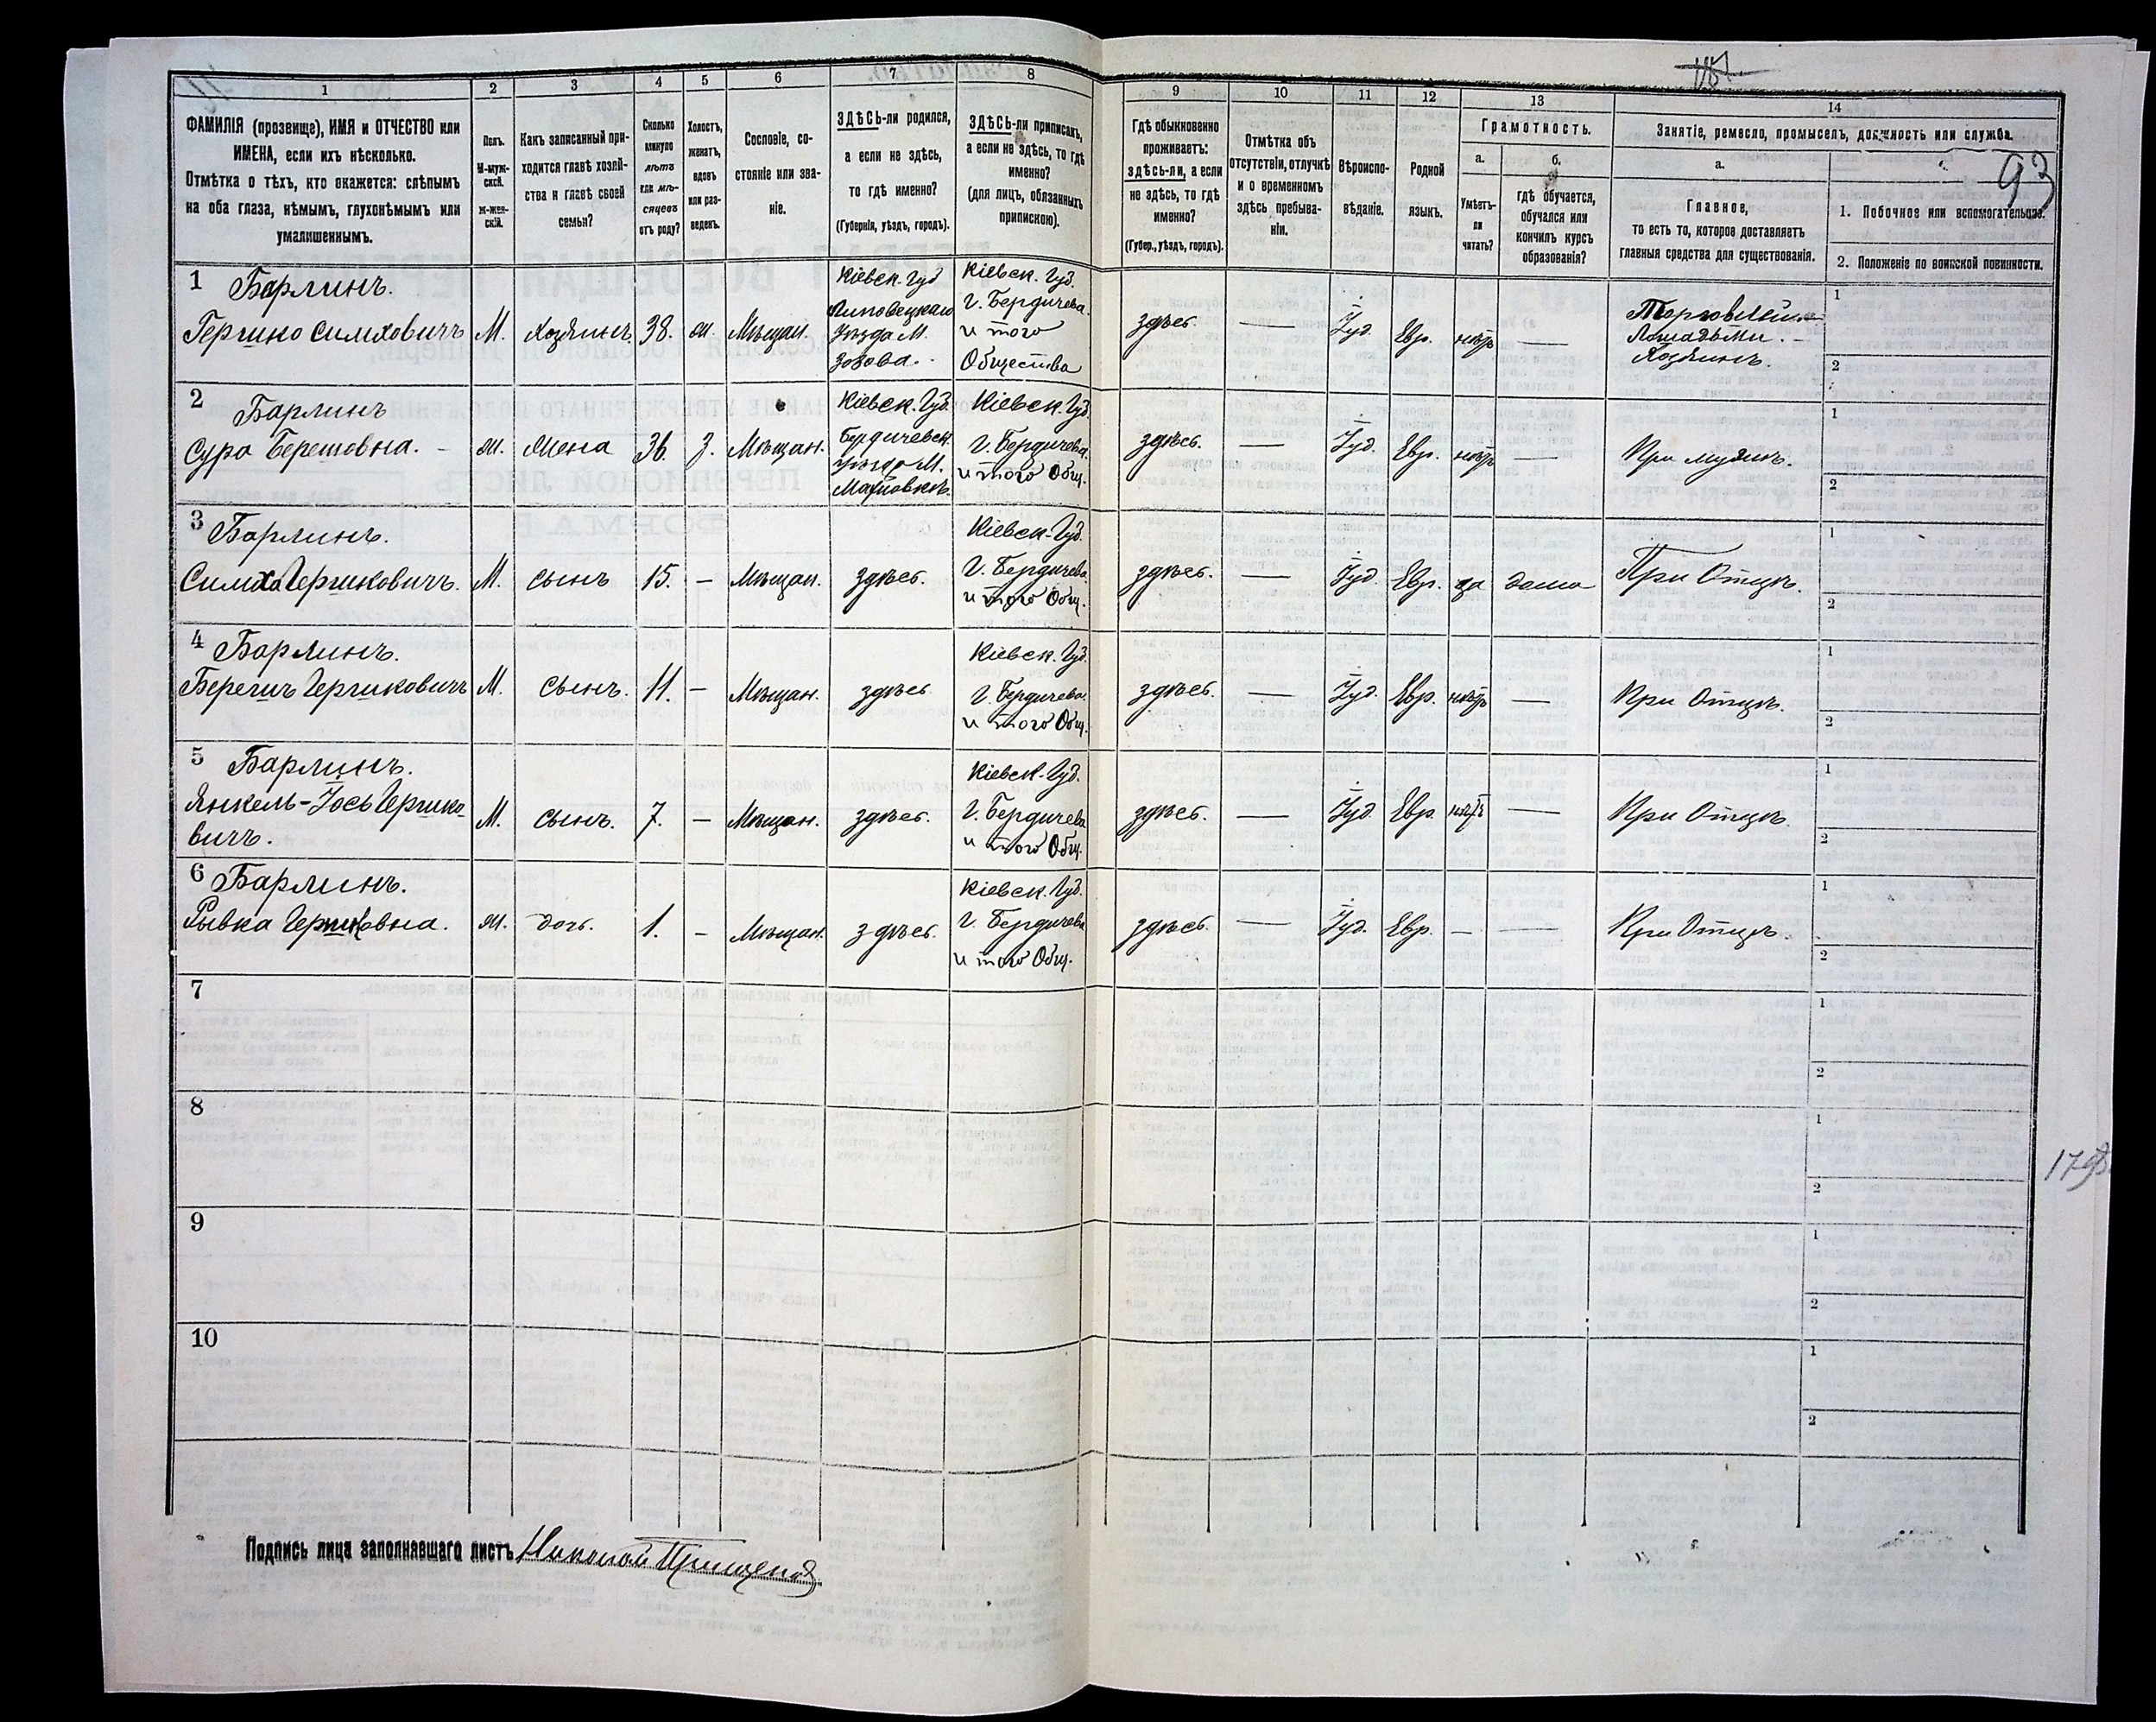 1 2 3 4 5 6 7 8 9 10 11 12 13 14
93
ФАМИЛІЯ (прозвище), ИМЯ и ОТЧЕСТВО или
ИМЕНА, если ихъ нѣсколько.
Отмѣтка о тѣхъ, кто окажется: слѣпымъ
на оба глаза, нѣмымъ, глухонѣмымъ или
умалишеннымъ.
Полъ.
М-муж-
ской.
ж-жен-
скій.
Какъ записанный при-
ходится главѣ хозяй-
ства и главѣ своей
семьи?
Сколько
минуло
лѣтъ
или мѣ-
сяцевъ
отъ роду?
Холостъ,
женатъ,
вдовъ
или раз-
веденъ.
Сословіе, со-
стояніе или зва-
ніе.
ЗДѢСЬ-ли родился,
а если не здѣсь,
то гдѣ именно?
(Губернія, уѣздъ, городъ).
ЗДѢСЬ-ли приписанъ,
а если не здѣсь, то гдѣ
именно?
(для лицъ, обязанныхъ
припискою).
Гдѣ обыкновенно
проживаетъ:
здѣсь-ли, а если
не здѣсь, то гдѣ
именно?
(Губер., уѣздъ, городъ).
Отмѣтка объ
отсутствіи, отлучкѣ
и о временномъ
здѣсь пребыва-
ніи.
Вѣроиспо-
вѣданіе.
Родной
языкъ.
Грамотность.
а.
Умѣетъ-
ли
читать?
б.
гдѣ обучается,
обучался или
кончилъ курсъ
образованія?
Занятіе, ремесло, промыселъ, должность или служба.
а.
Главное,
то есть то, которое доставляетъ
главныя средства для существованія.
1. Побочное или вспомогательное.
2. Положеніе по воинской повинности.
1 Барлинъ.
Гершко Симховичъ М. Хозяинъ 38. ж. Мѣщан.
Кіевск. Губ
Липовецкаго
Уѣзда М.
Зозова.
Кіевск. Губ.
г. Бердичева
и того
Общества
здѣсь. — Іуд. Евр. нѣтъ —
Торговлей
Лошадьми.
Хозяинъ.
1
2
2 Барлинъ
Сура Берешовна. ж. Жена 36 З. Мѣщан.
Кіевск. Губ.
Бердичевск.
Уѣзда М.
Кіевск. Губ
г. Бердичева
и того Общ.
здѣсь. — Іуд. Евр. нѣтъ — При мужѣ.
1
2
3 Барлинъ.
Симха Гершковичъ. М. сынъ 15. — Мѣщан. здѣсь.
Кіевск. Губ.
г. Бердичева
и того Общ.
здѣсь. — Іуд. Евр. да дома При Отцѣ.
1
2
4 Барлинъ.
Берешъ Гершковичъ М. Сынъ. 11. — Мѣщан. здѣсь
Кіевск. Губ.
г. Бердичева
и того Общ.
здѣсь. — Іуд. Евр. нѣтъ — При Отцѣ.
1
2
5 Барлинъ.
Янкель-Іось Гершко-
вичъ.
М. Сынъ. 7. — Мѣщан. здѣсь.
Кіевск. Губ.
г. Бердичева
и того Общ.
здѣсь. — Іуд. Евр. нѣтъ — При Отцѣ.
1
2
6 Барлинъ.
Рывка Гершковна. ж. дочь. 1. — Мѣщан. здѣсь.
Кіевск. Губ.
г. Бердичева
и того Общ.
здѣсь. — Іуд. Евр. — — При Отцѣ.
1
2
7
1
2
8
1
2
9
1
2
10
1
2
Подпись лица заполнявшаго листъ Николай